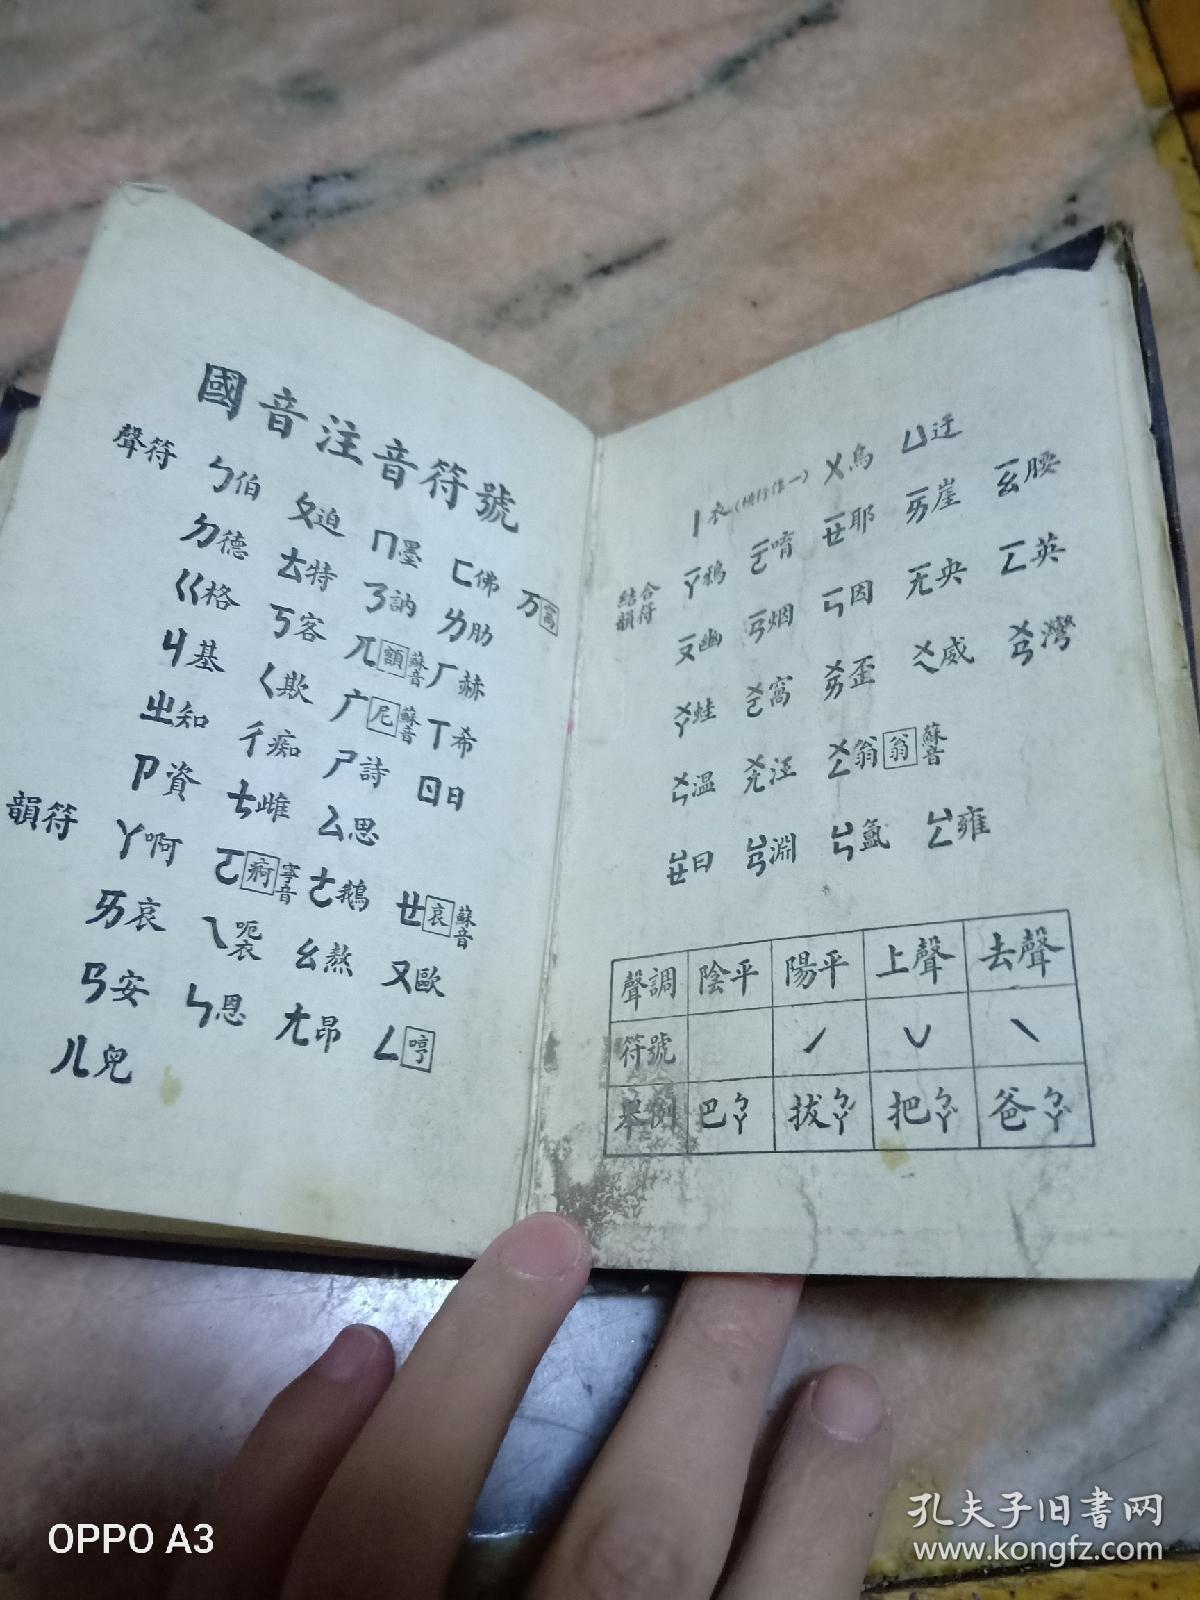 國音注音符號
聲符 ㄅ伯 ㄆ迫 ㄇ墨 ㄈ佛 万窩
ㄉ德 ㄊ特 ㄋ訥 ㄌ肋
ㄍ格 ㄎ客 ㄫ額蘇音 ㄏ赫
ㄐ基 ㄑ欺 ㄬ尼蘇音 ㄒ希
ㄓ知 ㄔ痴 ㄕ詩 ㄖ日
ㄗ資 ㄘ雌 ㄙ思
韻符 ㄚ啊 ㄛ痾寧音 ㄜ鵝 ㄝ哀蘇音
ㄞ哀 ㄟ呃衣 ㄠ熬 ㄡ歐
ㄢ安 ㄣ恩 ㄤ昂 ㄥ哼
ㄦ兒
丨衣(橫行作一) ㄨ烏 ㄩ迂
結合韻符 ㄧㄚ鴉 ㄧㄛ唷 ㄧㄝ耶 ㄧㄞ崖 ㄧㄠ腰
ㄧㄡ幽 ㄧㄢ烟 ㄧㄣ因 ㄧㄤ央 ㄧㄥ英
ㄨㄚ蛙 ㄨㄛ窩 ㄨㄞ歪 ㄨㄟ威 ㄨㄢ灣
ㄨㄣ温 ㄨㄤ汪 ㄨㄥ翁翁蘇音
ㄩㄝ曰 ㄩㄢ淵 ㄩㄣ氳 ㄩㄥ雍
聲調 陰平 陽平 上聲 去聲
符號 ˊ ˇ ˋ
舉例 巴ㄅㄚ 拔ㄅㄚ 把ㄅㄚ 爸ㄅㄚ
OPPO A3
孔夫子旧书网
www.kongfz.com